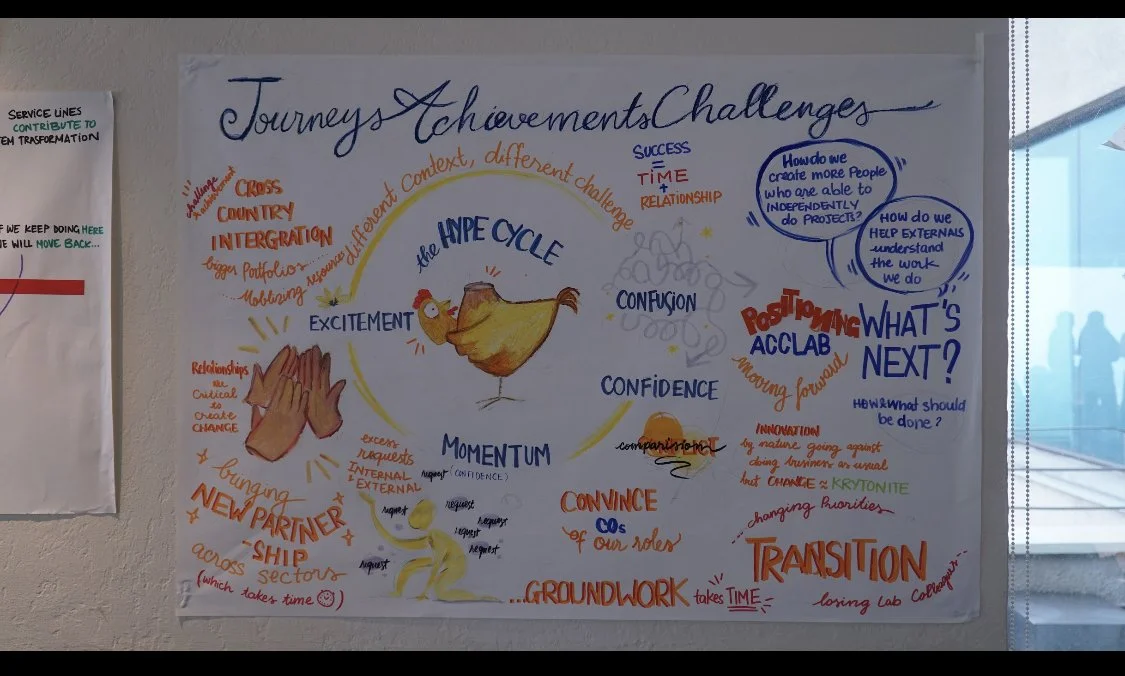 SERVICE LINES
CONTRIBUTE TO
TEM TRASFORMATION
F WE KEEP DOING HERE
WE WILL MOVE BACK...
Journeys Achievements Challenges
challenge
& achievement
CROSS
COUNTRY
INTERGRATION
bigger Portfolios....
....Moblizing resources
different Context, different challenge
the HYPE CYCLE
EXCITEMENT
SUCCESS
=
TiME
+
RELATIONSHIP
CONFUSION
CONFiDENCE
comparission
MOMENTUM
(CONFIDENCE)
How do we
create more People
who are able to
INDEPENDENTLY
do PROJECTS?
HOW do we
HELP EXTERNALS
understand
the work
we do
POSITIONING
ACCLAB
moving forward
WHAT'S
NEXT?
HOW & What should
be done?
Relationships
are
Critical
to
Create
CHANGE
bringing
NEW PARTNER
-SHIP
across sectors
(which takes time ☹)
excess
requests
INTERNAL
& EXTERNAL
request
request
request
request
request
request
request
CONVINCE
COs
of our roles
...GROUNDWORK takes TIME
INNOVATION
by nature going against
doing business as usual
but CHANGE ≈ KRYTONITE
changing Priorities
TRANSITION
losing Lab Colleagues